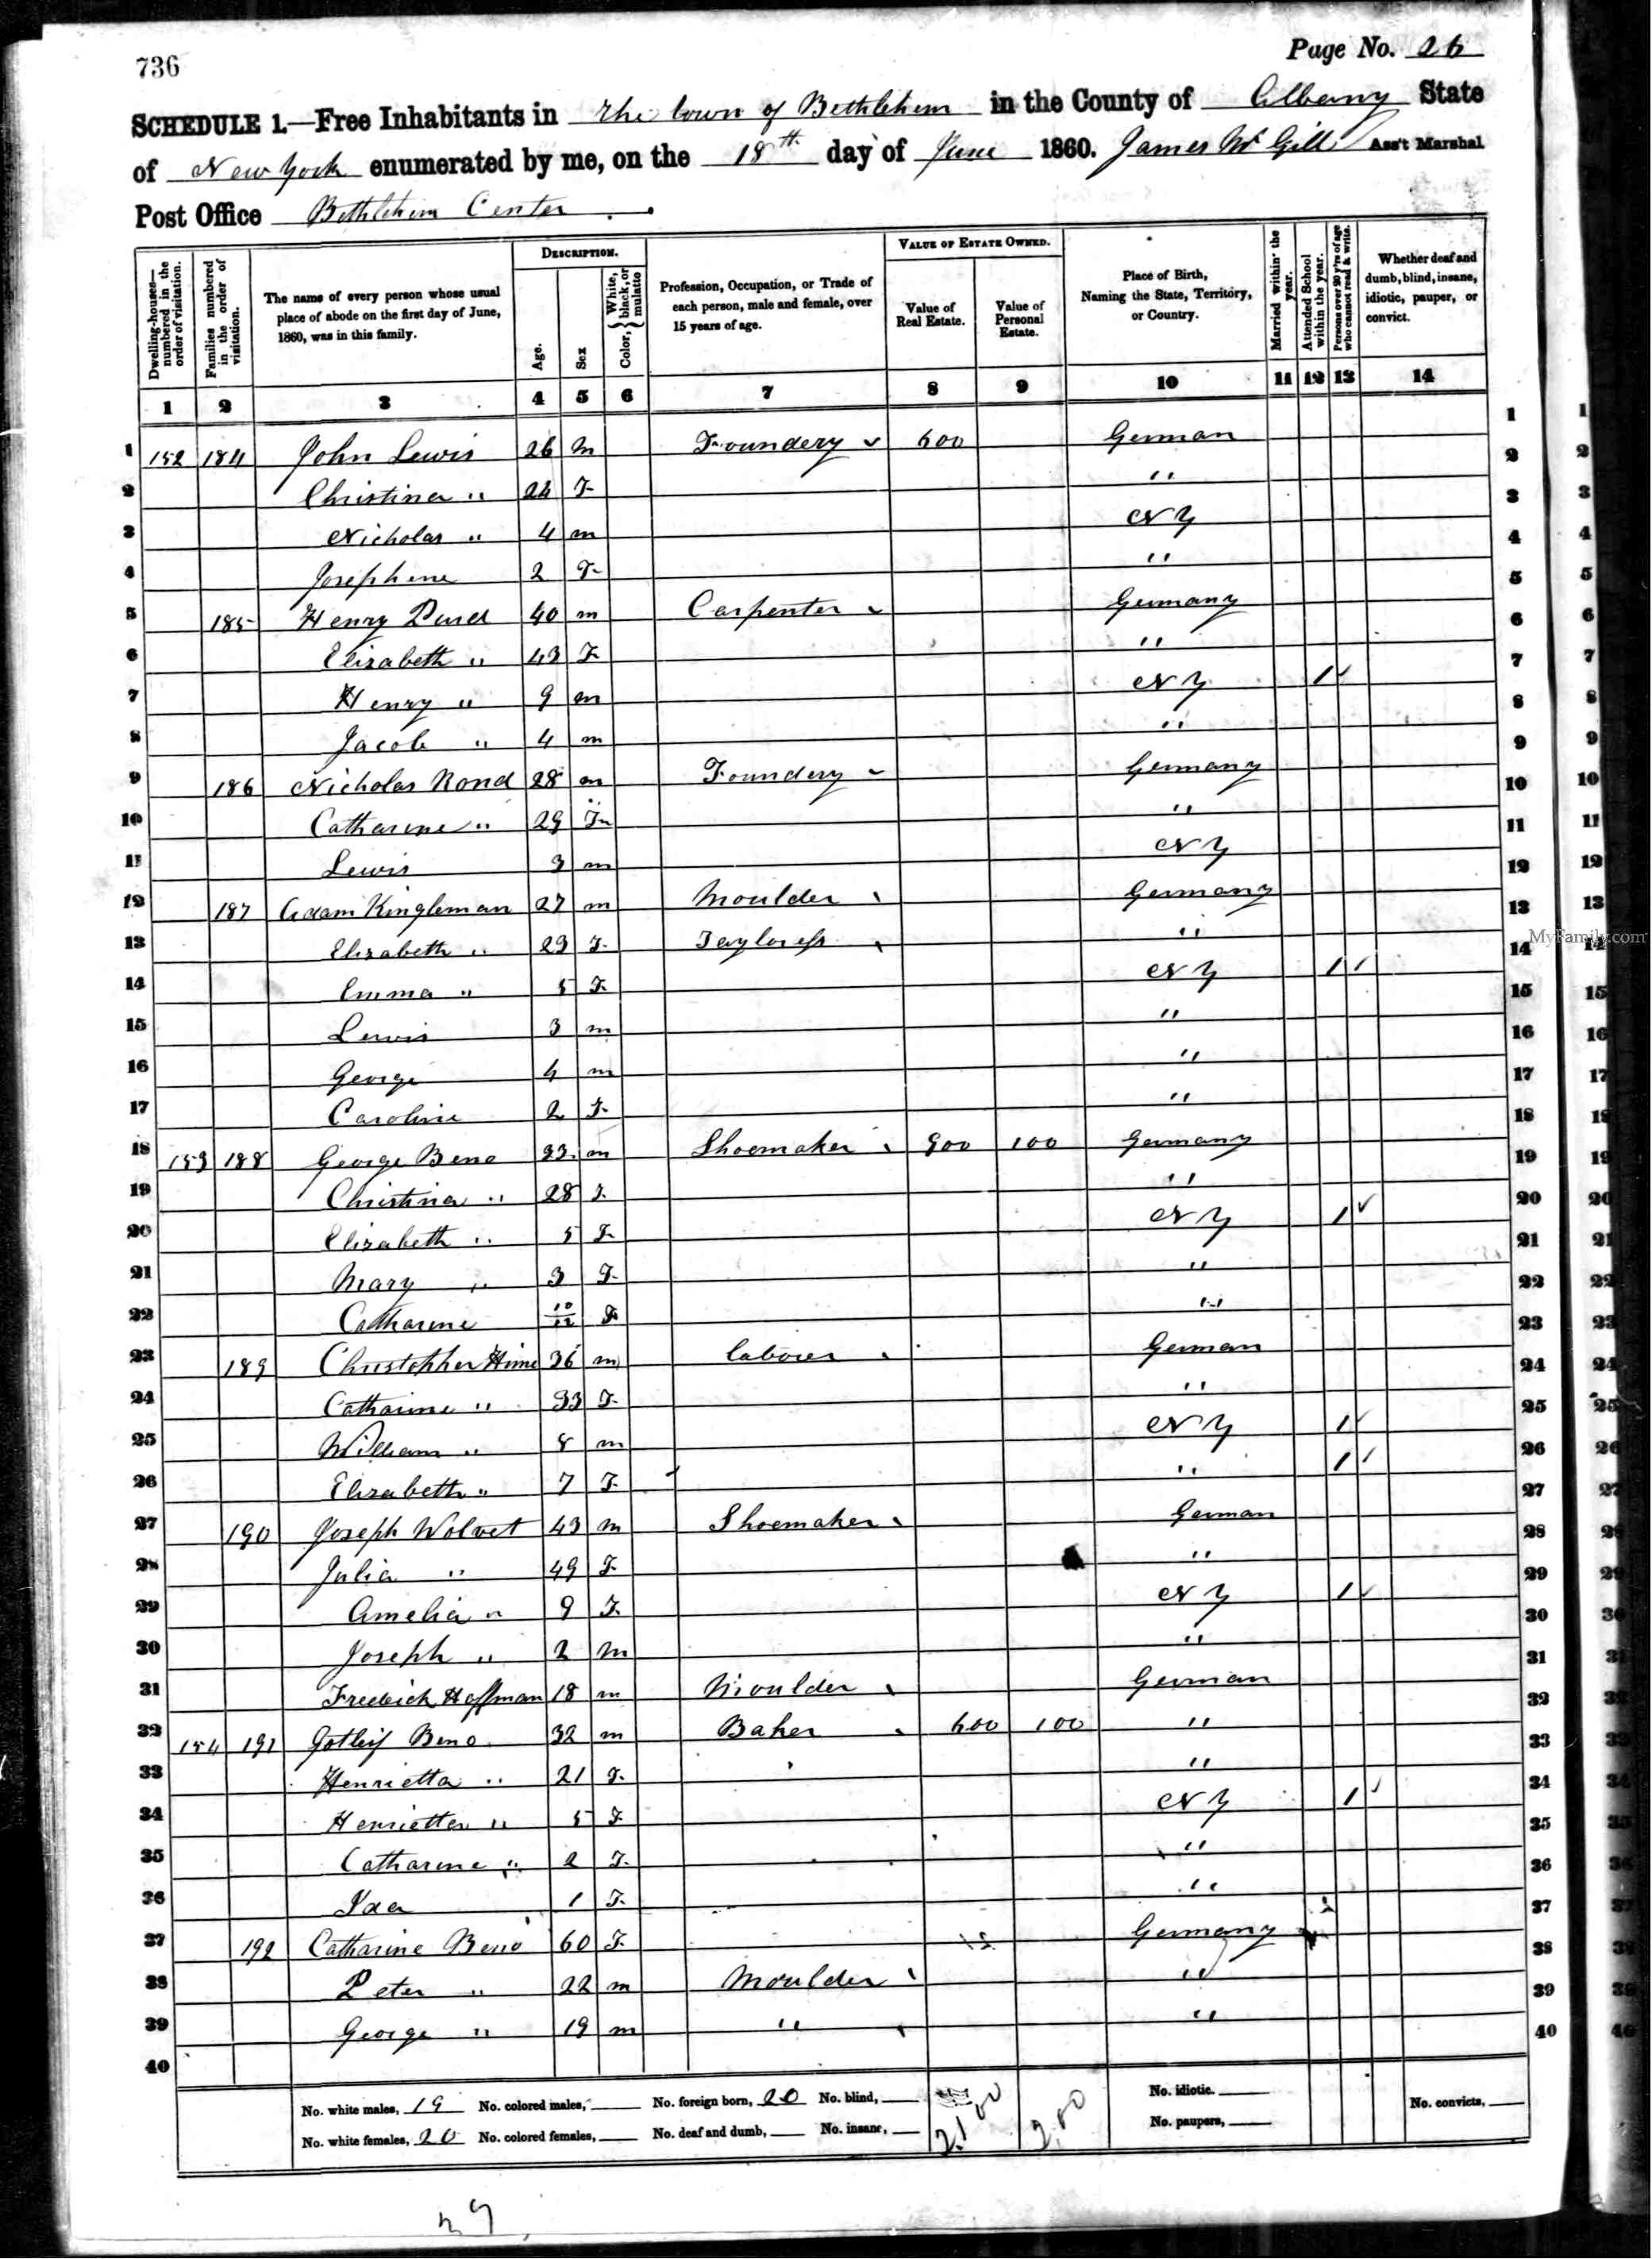 736
Page No. 26
SCHEDULE 1.—Free Inhabitants in The town of Bethlehem in the County of Albany State
of New York enumerated by me, on the 18th day of June 1860. James McGill Ass't Marshal
Post Office Bethlehem Center
Dwelling-houses—numbered in the order of visitation.
Families numbered in the order of visitation.
The name of every person whose usual place of abode on the first day of June, 1860, was in this family.
DESCRIPTION.
Age.
Sex
Color, { White, black, or mulatto
Profession, Occupation, or Trade of each person, male and female, over 15 years of age.
VALUE OF ESTATE OWNED.
Value of Real Estate.
Value of Personal Estate.
Place of Birth, Naming the State, Territory, or Country.
Married within the year.
Attended School within the year.
Persons over 20 y'rs of age who cannot read & write.
Whether deaf and dumb, blind, insane, idiotic, pauper, or convict.
1 2 3 4 5 6 7 8 9 10 11 12 13 14
1 152 184 John Lewis 26 m Foundery 600 German 1
2 Christina " 24 F " 2
3 Nicholas " 4 m N Y 3
4 Josephine 2 F " 4
5 185 Henry 40 m Carpenter Germany 5
6 Elizabeth " 43 F " 6
7 Henry " 9 m N Y 1 7
8 Jacob " 4 m " 8
9 186 Nicholas Rond 28 m Foundery Germany 9
10 Catharine " 29 F " 10
11 Lewis 3 m N Y 11
12 187 Adam Kingleman 27 m Moulder Germany 12
13 Elizabeth " 23 F Tayloress " 13
14 Emma " 5 F N Y 1 14
15 Lewis 3 m " 15
16 George 4 m " 16
17 Caroline 2 F " 17
18 153 188 George Beno 33 m Shoemaker 900 100 Germany 18
19 Christina " 28 F " 19
20 Elizabeth " 5 F N Y 1 20
21 Mary " 3 F " 21
22 Catharine 10/12 F " 22
23 189 Christopher Hime 36 m laborer German 23
24 Catharine " 33 F " 24
25 William " 8 m N Y 1 25
26 Elizabeth " 7 F " 1 26
27 190 Joseph Wolvet 43 m Shoemaker German 27
28 Julia " 49 F " 28
29 Amelia " 9 F N Y 1 29
30 Joseph " 2 m " 30
31 Frederick Hoffman 18 m Moulder German 31
32 154 191 Gotleif Beno 32 m Baker 600 100 " 32
33 Henrietta " 21 F " 33
34 Henrietta " 5 F N Y 1 34
35 Catharine " 2 F " 35
36 Ida 1 F " 36
37 192 Catharine Beno 60 F Germany 37
38 Peter " 22 m Moulder " 38
39 George " 19 m " " 39
40 40
No. white males, 19 No. colored males, No. foreign born, 20 No. blind, No. idiotic. No. convicts,
No. white females, 20 No. colored females, No. deaf and dumb, No. insane, 2100 200 No. paupers,
39
MyFamily.com